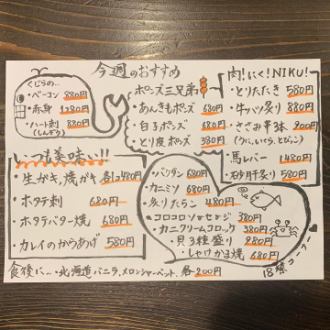 今週のおすすめ
くじらの…
・ベーコン 880円
・赤身 1280円
・ハート刺 880円
(しんぞう)
ポン三兄弟
・あんきもポン 680円
・白子ポン 680円
・とり皮ポン 380円
肉!にく!NIKU!
・とりたたき 580円
・牛ハツ炙り 880円
・ささみ串3本 900円
・馬レバー 1480円
・砂肝炙り 580円
美味い!!
・生ガキ、焼ガキ 各1コ480円
・ホタテ刺 680円
・ホタテバター焼 680円
・カレイのからあげ 580円
680円
・カニミソ 680円
・炙りたらこ 480円
・コロコロソーセージ 380円
・カニクリームコロッケ 380円
・貝3種盛り 980円
・しゃけかま焼 680円
食後に…・北海道バニラ、メロンシャーベット、各200円
18禁コーナー